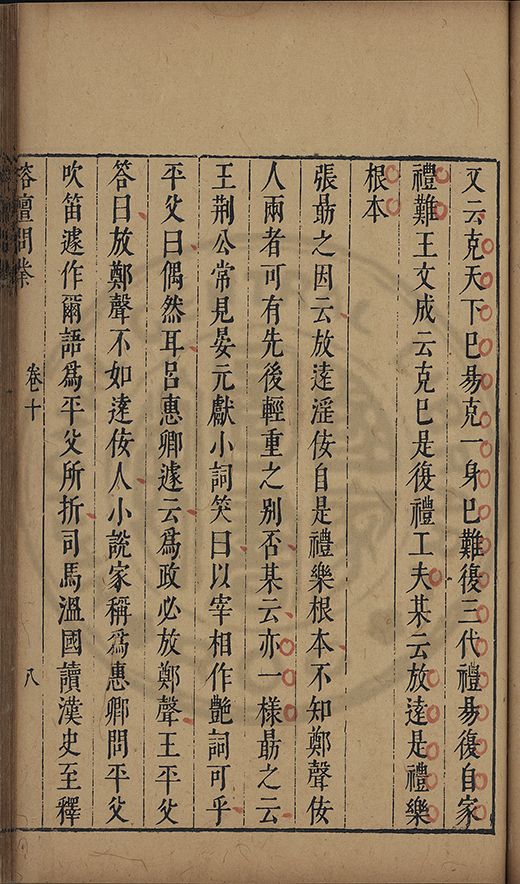 又云克天下巳易克一身巳難復三代禮易復自家
禮難王文成云克巳是復禮工夫某云放逺是禮樂
根本
張勗之因云放逺滛佞自是禮樂根本不知鄭聲佞
人兩者可有先後輕重之别否某云亦一様勗之云
王荆公常見晏元獻小詞笑曰以宰相作艶詞可乎
平父曰偶然耳呂惠卿遽云爲政必放鄭聲王平父
答曰放鄭聲不如逺佞人小說家稱爲惠卿問平父
吹笛遽作爾語爲平父所折司馬溫國讀漢史至釋
榕壇問業
卷十
八